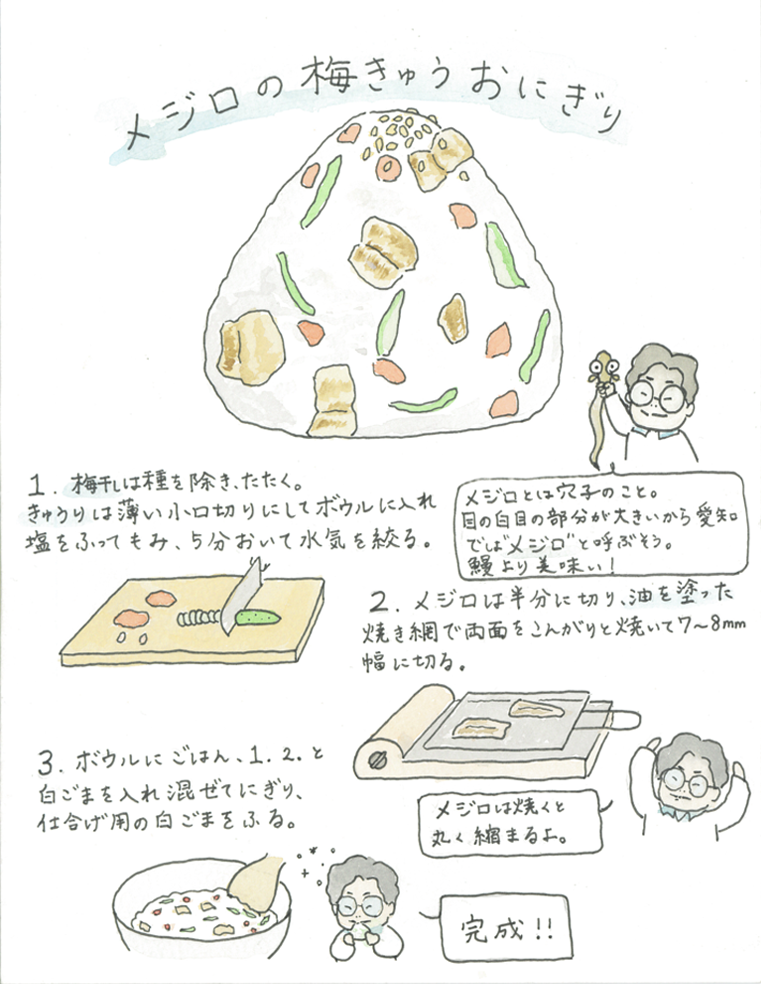 メジロの梅きゅうおにぎり
1. 梅干しは種を除き、たたく。
きゅうりは薄い小口切りにしてボウルに入れ
塩をふってもみ、5分おいて水気を絞る。
メジロとは穴子のこと。
目の白目の部分が大きいから愛知
では"メジロ"と呼ぶそう。
鰻より美味い!
2. メジロは半分に切り、油を塗った
焼き網で両面をこんがりと焼いて7〜8mm
幅に切る。
メジロは焼くと
丸く縮まるよ。
3. ボウルにごはん、1.2.と
白ごまを入れ混ぜてにぎり、
仕合げ用の白ごまをふる。
完成!!